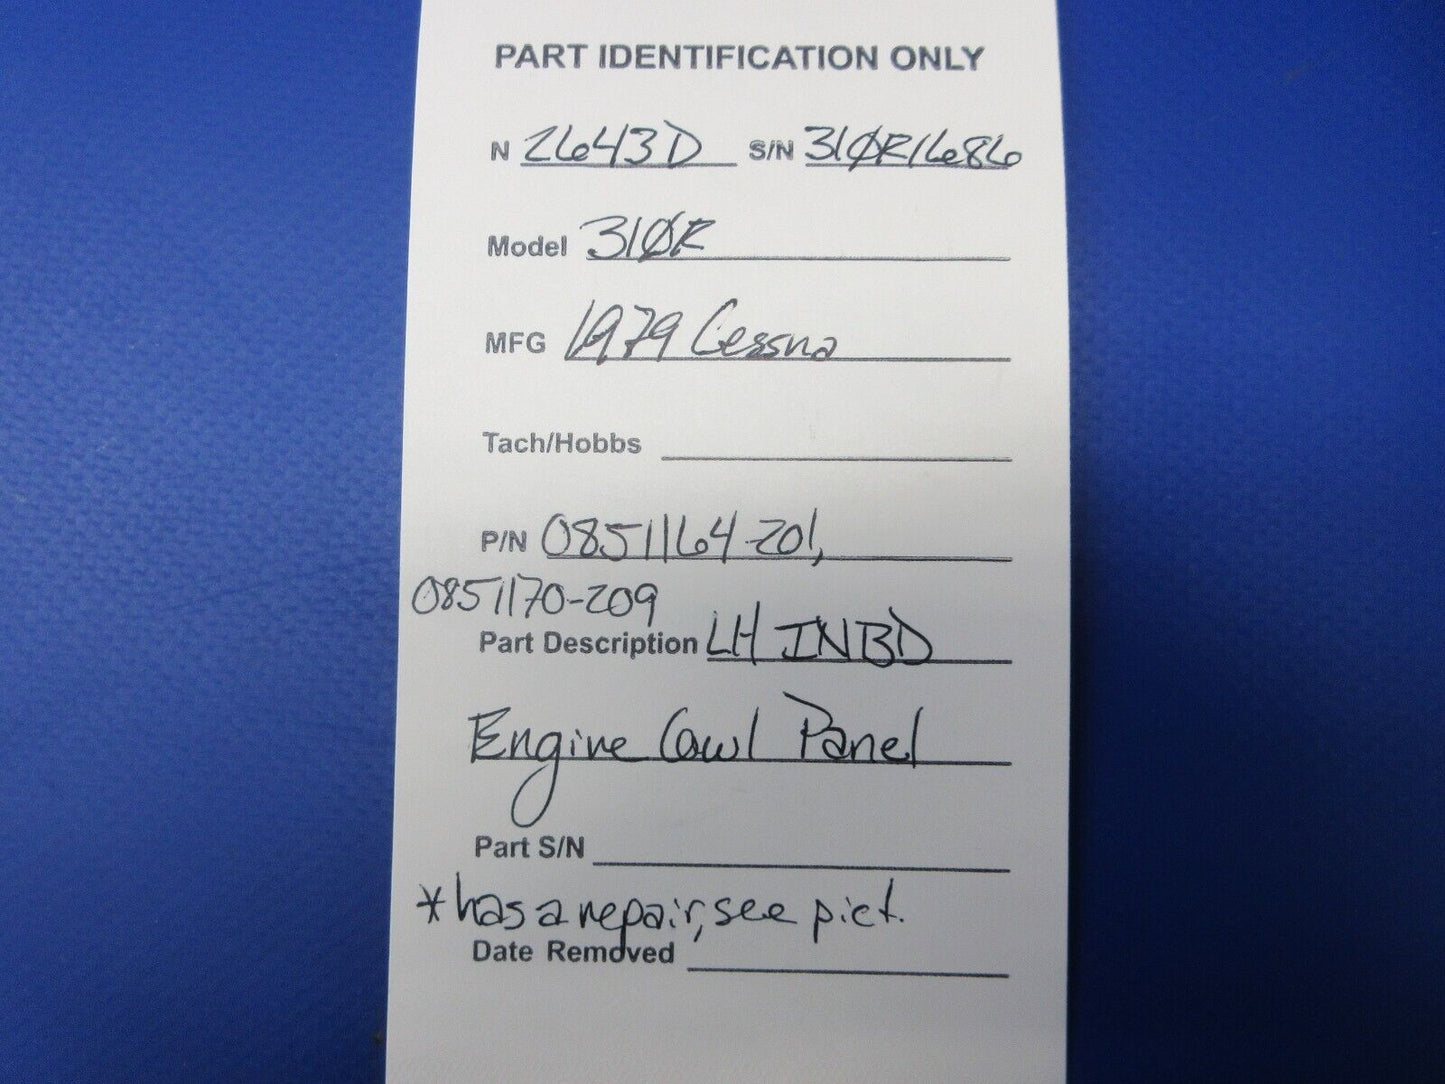 PART IDENTIFICATION ONLY
N 2643D S/N 310R1686
Model 310R
MFG 1979 Cessna
Tach/Hobbs
P/N 0851164-201,
0851170-209
Part Description LH INBD
Engine Cowl Panel
Part S/N
*has a repair, see pict.
Date Removed